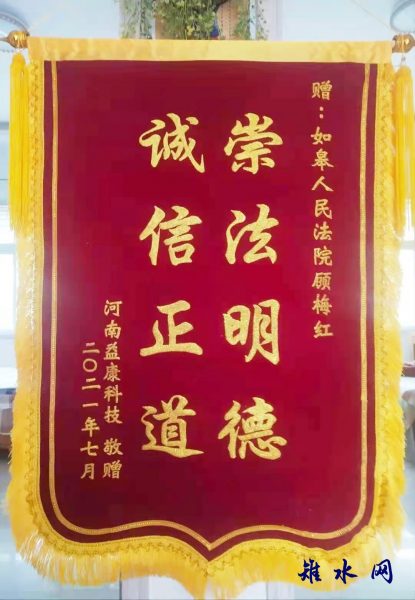 赠：如皋人民法院顾梅红
崇法明德
诚信正道
河南益康科技 敬赠
二〇二一年七月
雉水网